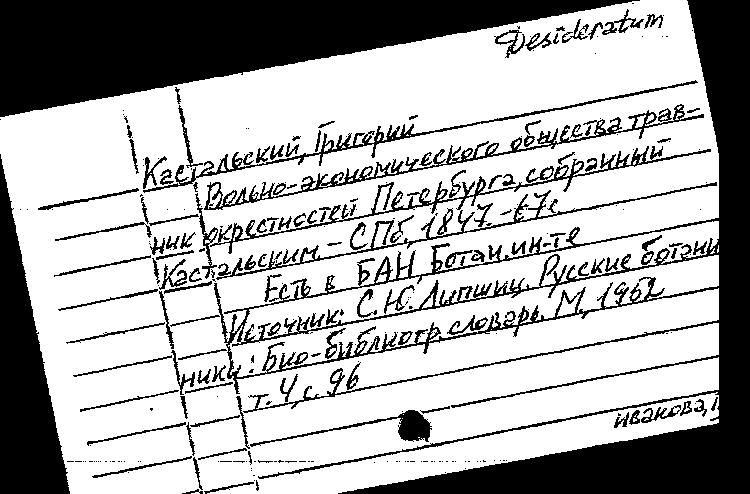 Desideratum
Кастальский, Григорий
Вольно-экономического общества трав-
ник окрестностей Петербурга, собранный
Кастальским. - СПб, 1847. - 67с
Есть в БАН, Ботан. ин-те
Источник: С.Ю. Липшиц. Русские ботани
ники: Био-библиогр. словарь. М, 1952
т. 4, с. 96
иванова,